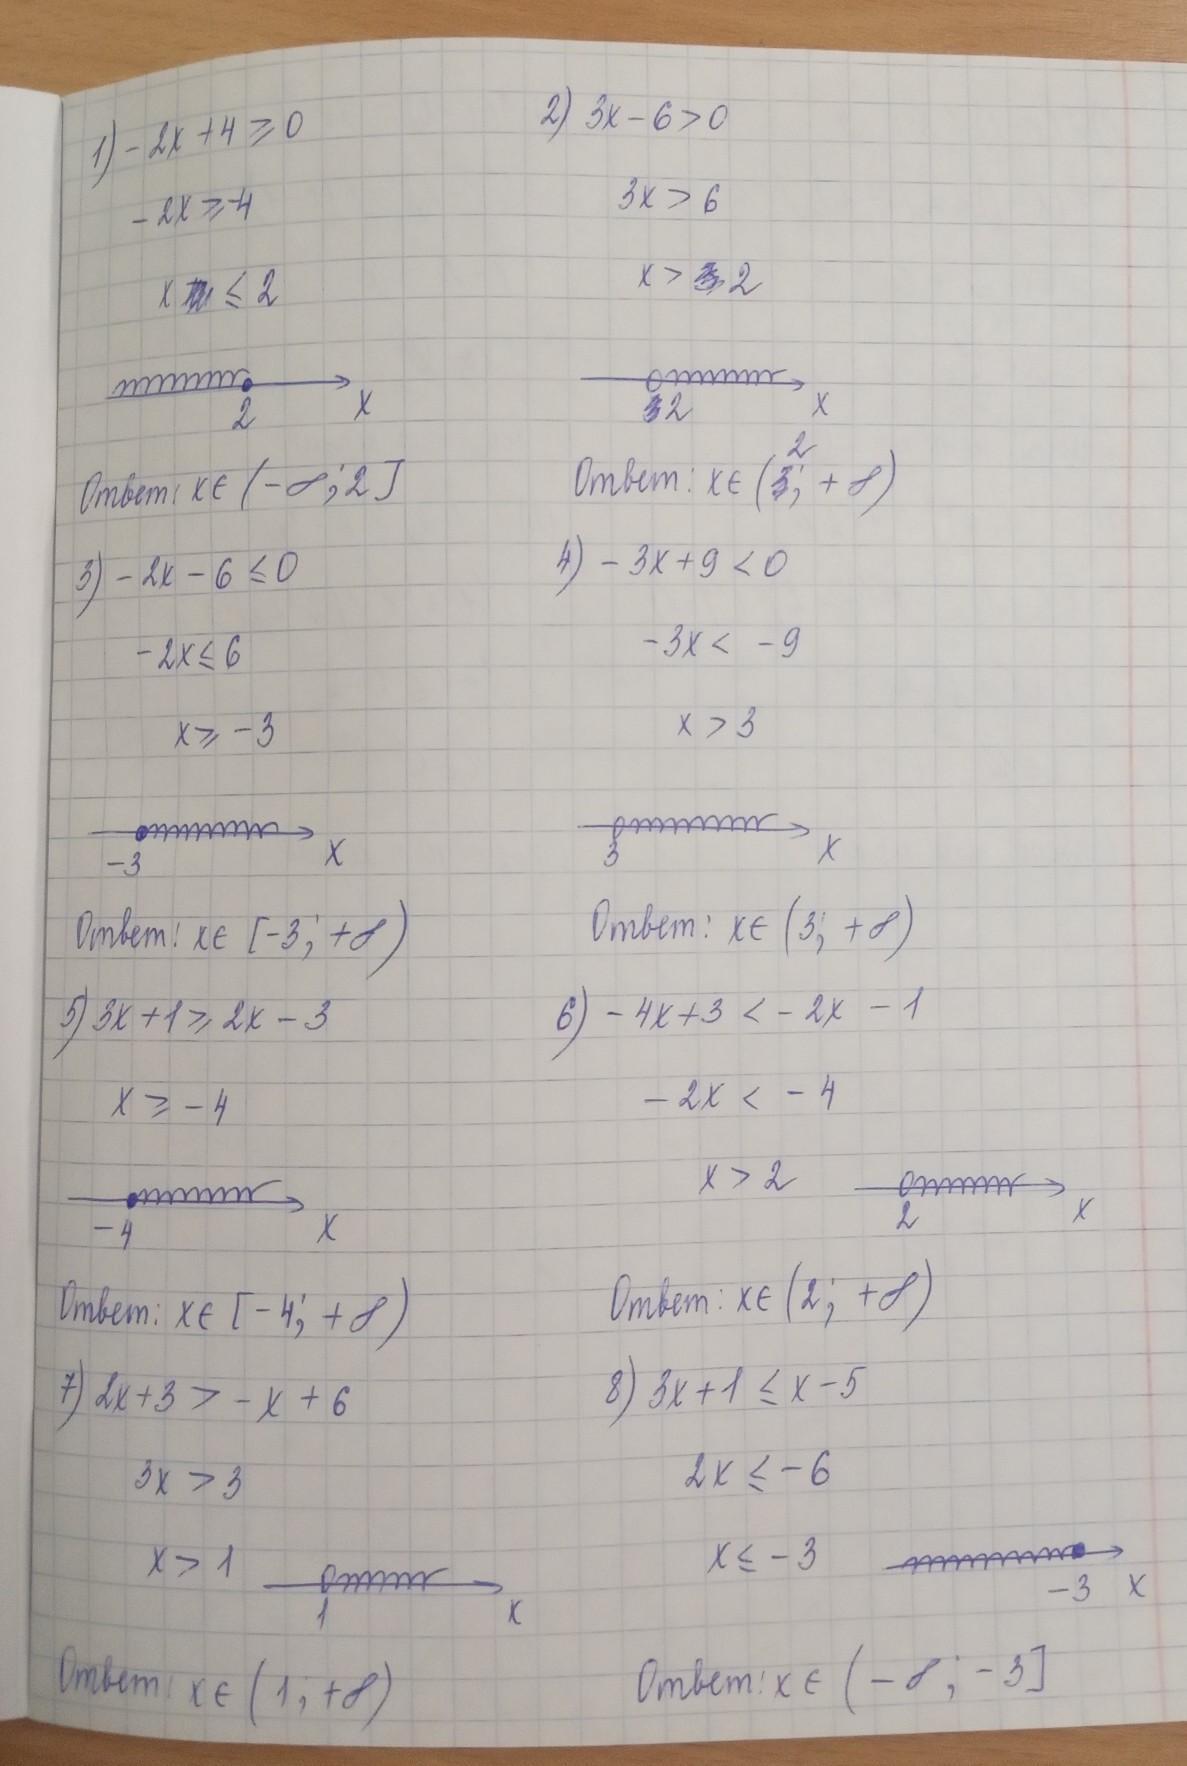 1) -2x+4 ⩾ 0
-2x ⩾ -4
x ≤ 2
2
x
Ответ: x∈ (-∞; 2]
2) 3x-6>0
3x > 6
x > 2
2
x
2
Ответ: x∈ (3; +∞)
3) -2x-6 ≤ 0
-2x ≤ 6
x ⩾ -3
-3
x
Ответ: x∈ [-3; +∞)
4) -3x+9 < 0
-3x < -9
x > 3
3
x
Ответ: x∈ (3; +∞)
5) 3x+1 ⩾ 2x-3
x ⩾ -4
-4
x
Ответ: x∈ [-4; +∞)
6) -4x+3 < -2x-1
-2x < -4
x > 2
2
x
Ответ: x∈ (2; +∞)
7) 2x+3 > -x+6
3x > 3
x > 1
1
x
Ответ: x∈ (1; +∞)
8) 3x+1 ≤ x-5
2x ≤ -6
x ≤ -3
-3
x
Ответ: x∈ (-∞; -3]